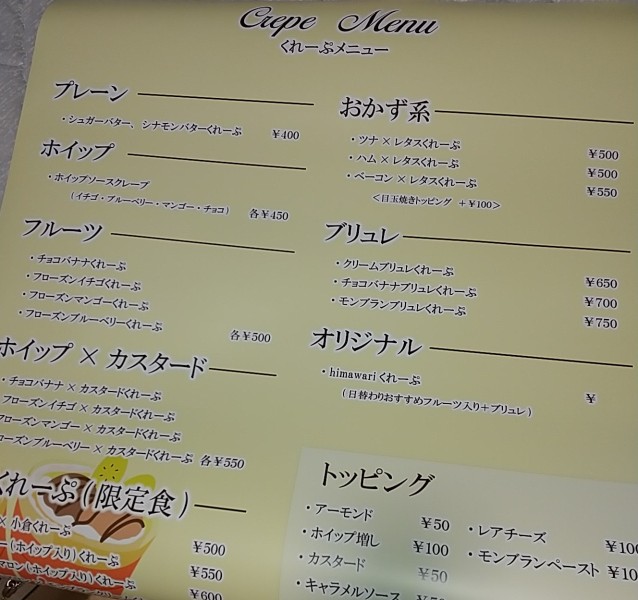 Crepe Menu
くれーぷメニュー
プレーン
・シュガーバター、シナモンバターくれーぷ ¥400
ホイップ
・ホイップソースクレープ
(イチゴ・ブルーベリー・マンゴー・チョコ) 各¥450
フルーツ
・チョコバナナくれーぷ
・フローズンイチゴくれーぷ
・フローズンマンゴーくれーぷ
・フローズンブルーベリーくれーぷ 各¥500
ホイップ × カスタード
・チョコバナナ × カスタードくれーぷ
フローズンイチゴ × カスタードくれーぷ
フローズンマンゴー × カスタードくれーぷ
ローズンブルーベリー × カスタードくれーぷ 各¥550
くれーぷ(限定食)
× 小倉くれーぷ ¥500
ー(ホイップ入り)くれーぷ ¥550
マロン(ホイップ入り)くれーぷ ¥600
おかず系
・ツナ × レタスくれーぷ ¥500
・ハム × レタスくれーぷ ¥500
・ベーコン × レタスくれーぷ ¥550
<目玉焼きトッピング +¥100>
ブリュレ
・クリームブリュレくれーぷ ¥650
・チョコバナナブリュレくれーぷ ¥700
・モンブランブリュレくれーぷ ¥750
オリジナル
・himawariくれーぷ ¥
(日替わりおすすめフルーツ入り+ブリュレ)
トッピング
・アーモンド ¥50
・ホイップ増し ¥100
・カスタード ¥50
・キャラメルソース
・レアチーズ ¥100
・モンブランペースト ¥10